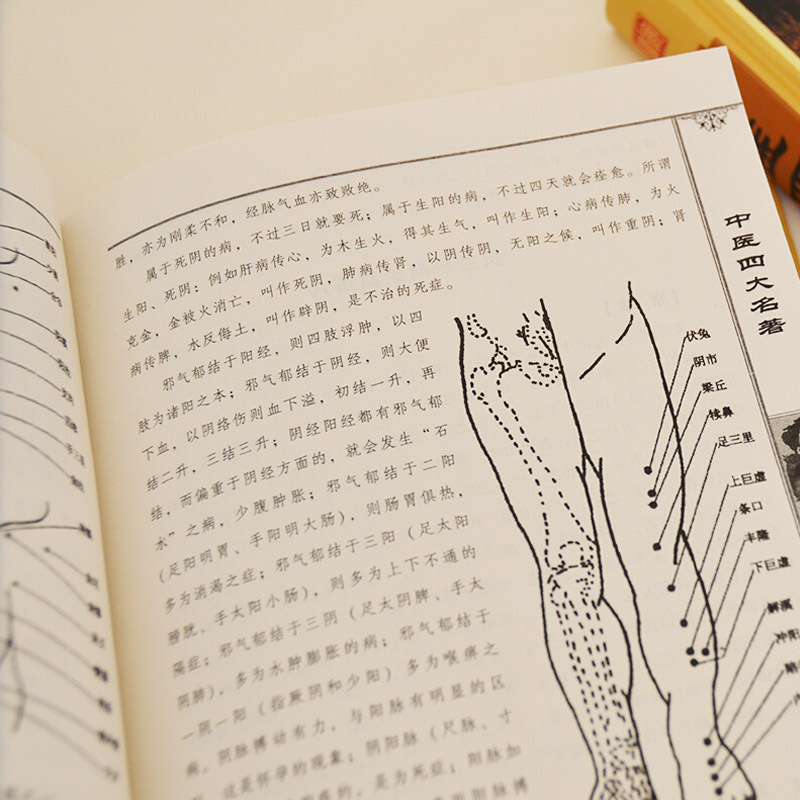 胜，亦为刚柔不和，经脉气血亦致败绝。
属于死阴的病，不过三日就要死；属于生阳的病，不过四天就会痊愈。所谓
生阳、死阴：例如肝病传心，为木生火，得其生气，叫作生阳；心病传肺，为火
克金，金被火消亡，叫作死阴，肺病传肾，以阴传阴，无阳之候，叫作重阴；肾
病传脾，水反侮土，叫作辟阴，是不治的死症。
邪气郁结于阳经，则四肢浮肿，以四
肢为诸阳之本；邪气郁结于阴经，则大便
下血，以阴络伤则血下溢，初结一升，再
结二升，三结三升；阴经阳经都有邪气郁
结，而偏重于阴经方面的，就会发生“石
水”之病，少腹肿胀；邪气郁结于二阳
（足阳明胃、手阳明大肠），则肠胃俱热，
多为消渴之症；邪气郁结于三阳（足太阳
膀胱、手太阳小肠），则多为上下不通的
隔症；邪气郁结于三阴（足太阴脾、手太
阴肺），多为水肿膨胀的病；邪气郁结于
一阴一阳（指厥阴和少阳）多为喉痹之
病。阴脉搏动有力，与阳脉有明显的区
这是怀孕的现象；阴阳脉（尺脉、寸
的，是为死症；阳脉加
阳脉搏
中医四大名著
伏兔
阴市
梁丘
犊鼻
足三里
上巨虚
条口
丰隆
下巨虚
解溪
冲阳